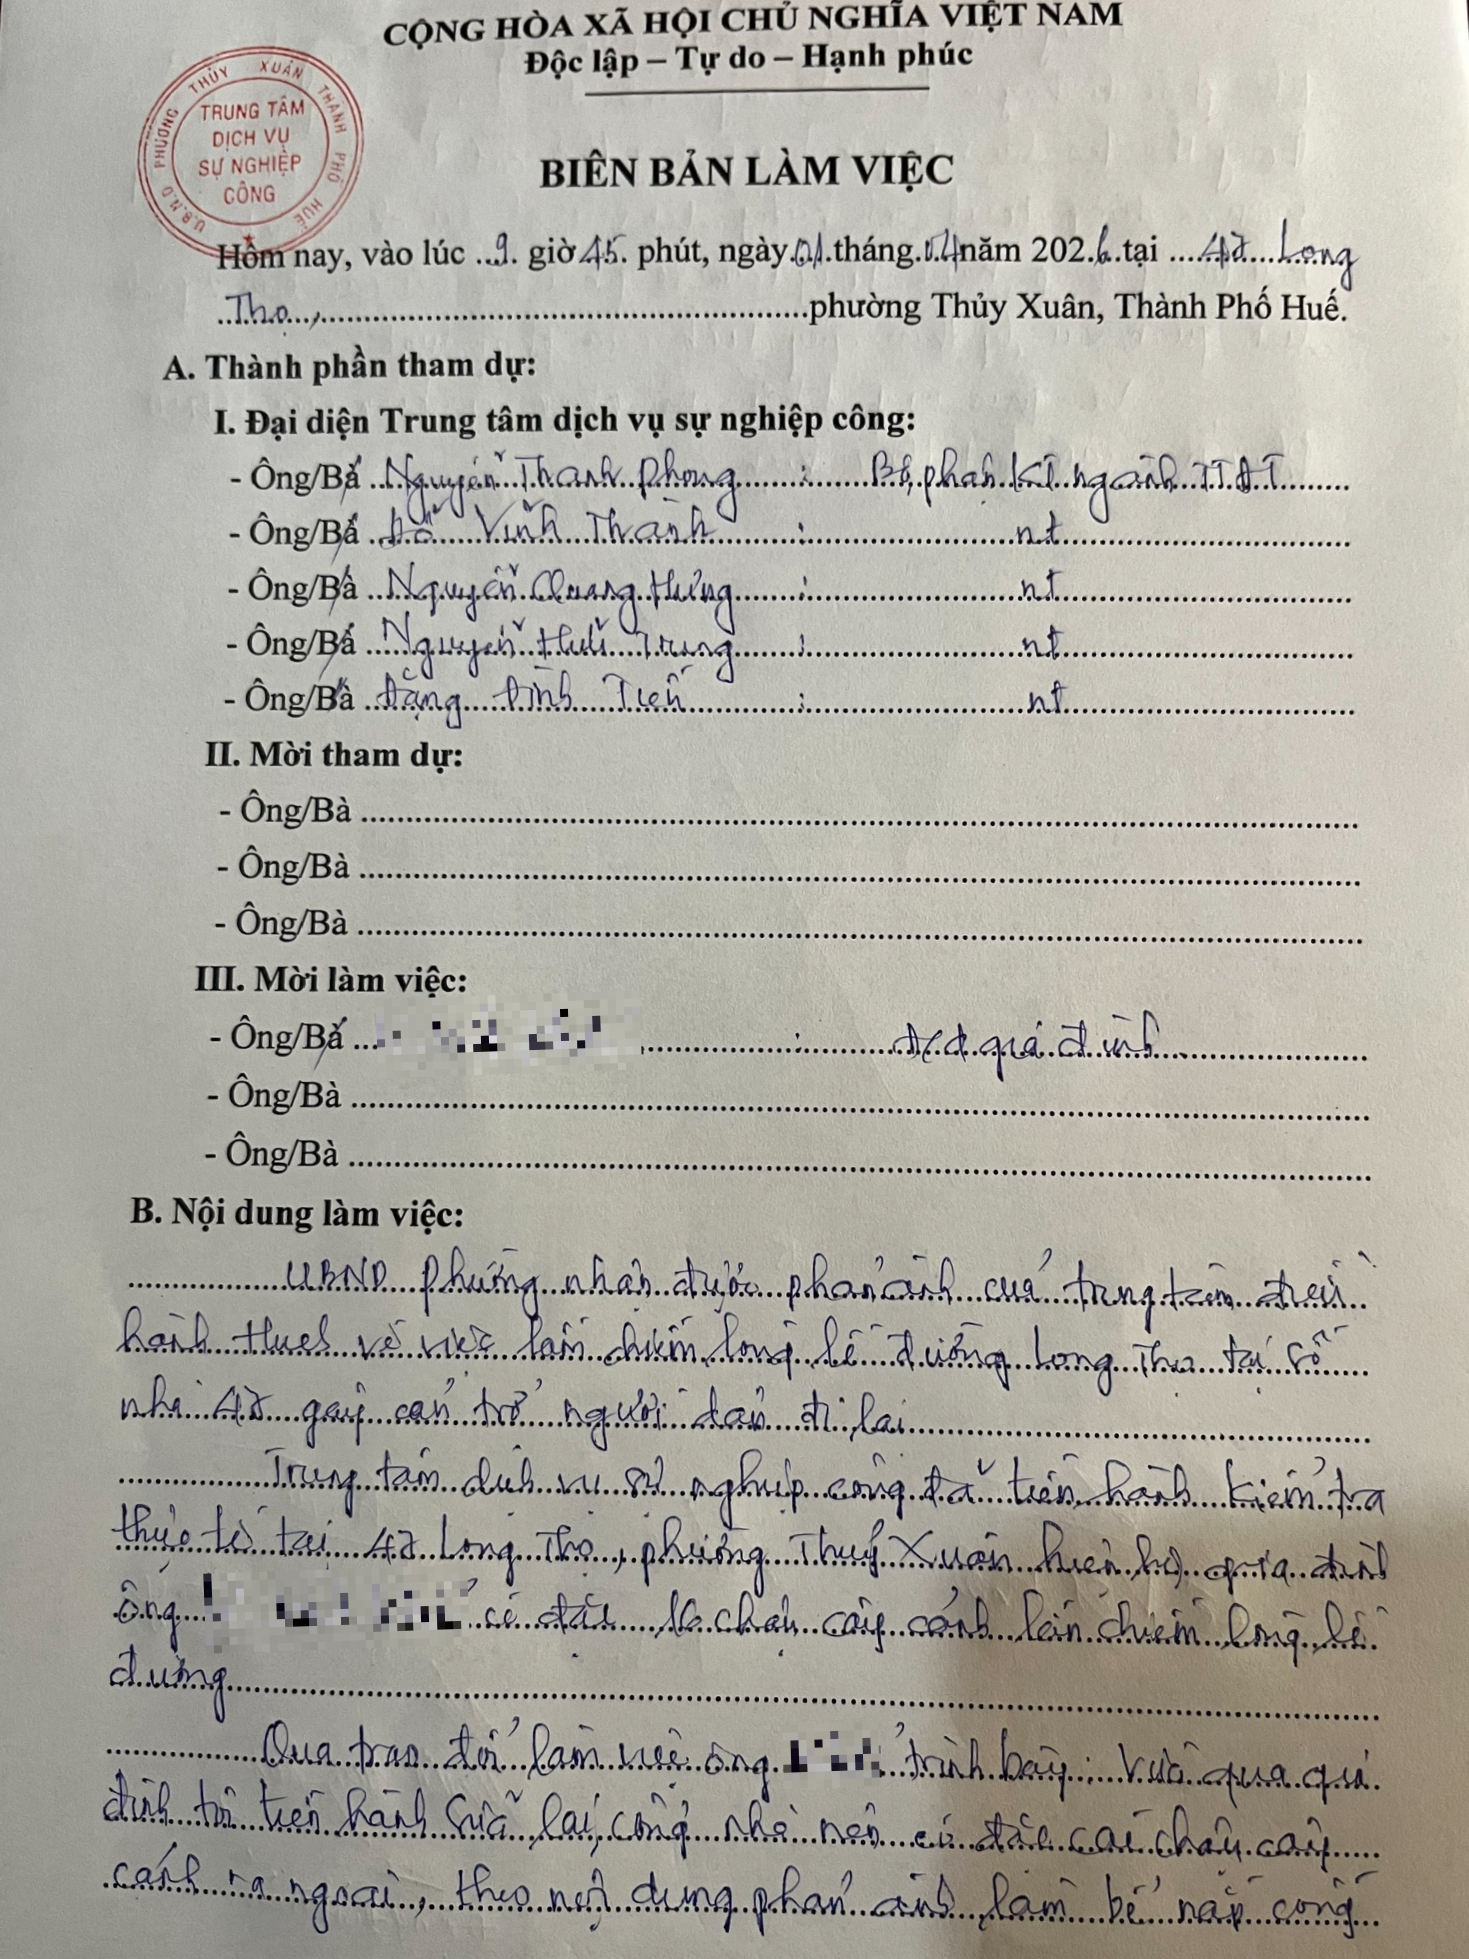 CỘNG HÒA XÃ HỘI CHỦ NGHĨA VIỆT NAM
Độc lập – Tự do – Hạnh phúc
U.B.N.D PHƯỜNG THỦY XUÂN THÀNH PHỐ HUẾ
TRUNG TÂM
DỊCH VỤ
SỰ NGHIỆP
CÔNG
BIÊN BẢN LÀM VIỆC
Hôm nay, vào lúc 9 giờ 45 phút, ngày 01 tháng 04 năm 2026 tại 42 Long
Thọ, phường Thủy Xuân, Thành Phố Huế.
A. Thành phần tham dự:
I. Đại diện Trung tâm dịch vụ sự nghiệp công:
- Ông/Bà Nguyễn Thanh Phong : Bộ phận KT ngành TTĐT
- Ông/Bà Đỗ Vinh Thành : nt
- Ông/Bà Nguyễn Quang Hưng : nt
- Ông/Bà Nguyễn Hữu Trung : nt
- Ông/Bà Đặng Đình Tiến : nt
II. Mời tham dự:
- Ông/Bà
- Ông/Bà
- Ông/Bà
III. Mời làm việc:
- Ông/Bà : đình
- Ông/Bà
- Ông/Bà
B. Nội dung làm việc:
UBND phường nhận được phản ánh của trung tâm điều
hành HueS về việc lấn chiếm lòng lề đường Long Thọ tại số
nhà 42 gây cản trở người dân đi lại
Trung tâm dịch vụ sự nghiệp công đã tiến hành kiểm tra
thực tế tại 42 Long Thọ, phường Thuỷ Xuân hiện hộ gia đình
ông có đặt 16 chậu cây cảnh lấn chiếm lòng lề
đường
Qua trao đổi làm việc ông trình bày: Vừa qua gia
đình tôi tiến hành sửa lại cổng nhà nên có đặt các chậu cây
cảnh ra ngoài, theo nội dung phản ánh làm bể nắp cống